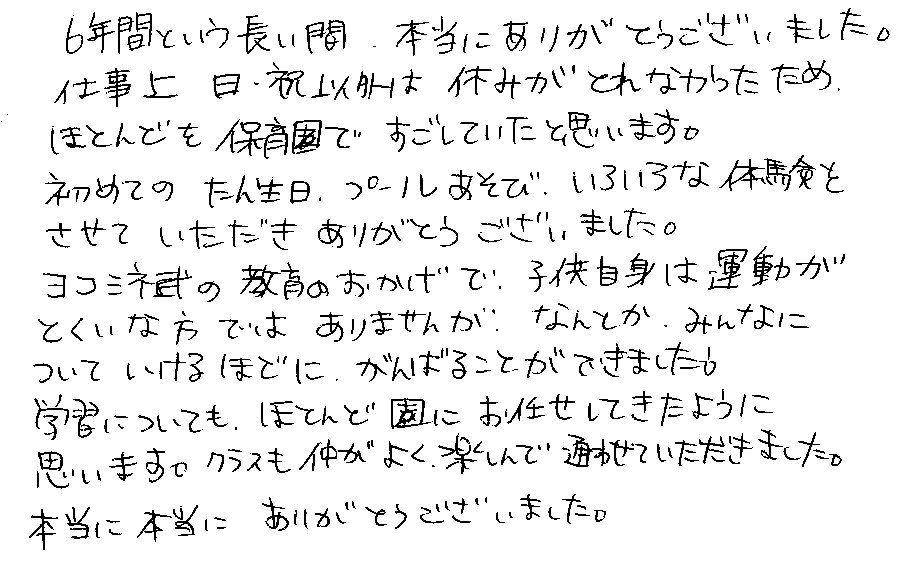 6年間という長い間、本当にありがとうございました。
仕事上 日・祝以外は 休みがとれなかったため、
ほとんどを保育園で すごしていたと思います。
初めての たん生日、プールあそび、いろいろな体験を
させて いただき ありがとう ございました。
ヨコミネ式の 教育のおかげで、子供自身は運動が
とくいな方 では ありませんが、なんとか、みんなに
ついて いけるほどに、がんばることができました。
学習についても、ほとんど 園に お任せしてきたように
思います。クラスも仲がよく、楽しんで 通わせていただきました。
本当に 本当に ありがとうございました。